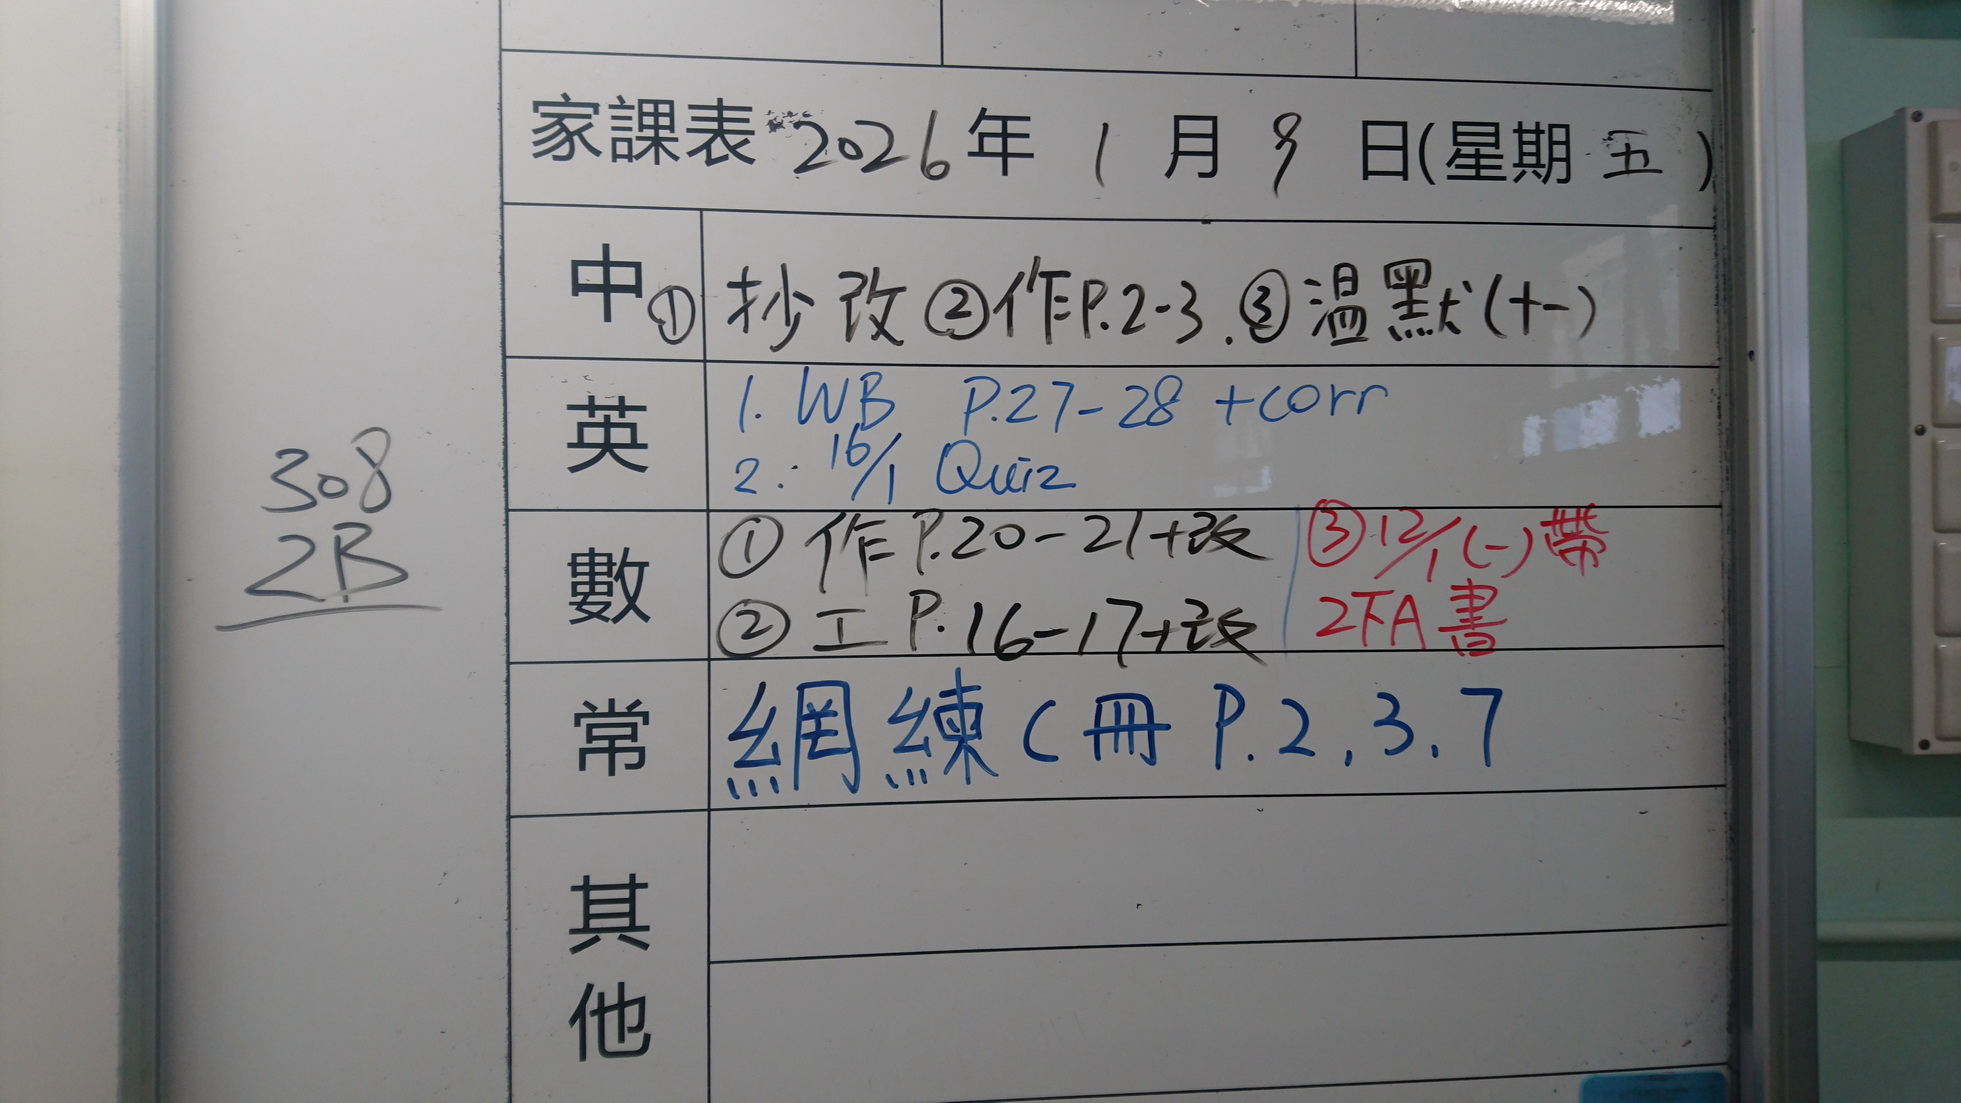 家課表 2026年 1月 9日(星期 五)
中 ① 抄改 ②作P.2-3. ③溫默(十一)
英
1. WB P.27-28 +corr
2. 16/1 Quiz
308
2B
數
① 作P.20-21+改
② 工P.16-17+改
③ 12/1 (一) 帶
2下A 書
常 網練C冊 P.2,3,7
其
他